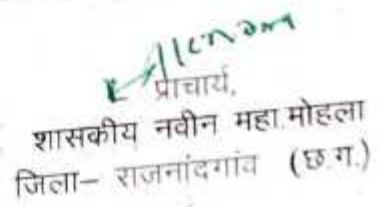 प्राचार्य,
शासकीय नवीन महा.मोहला
जिला– राजनांदगांव (छ.ग.)